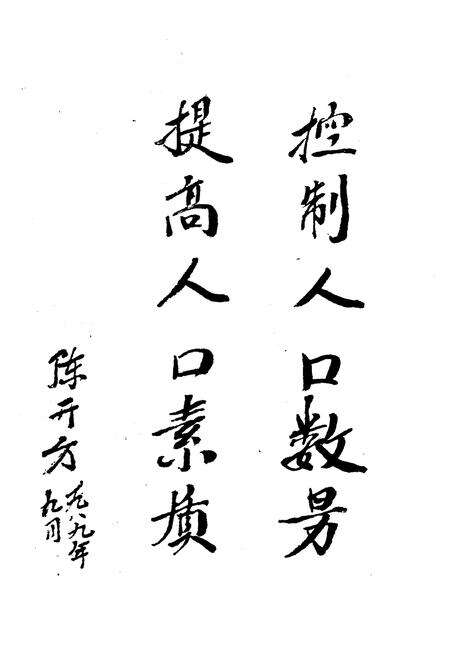 控制人口数量
提高人口素质
陈开方
一九八九年
九月